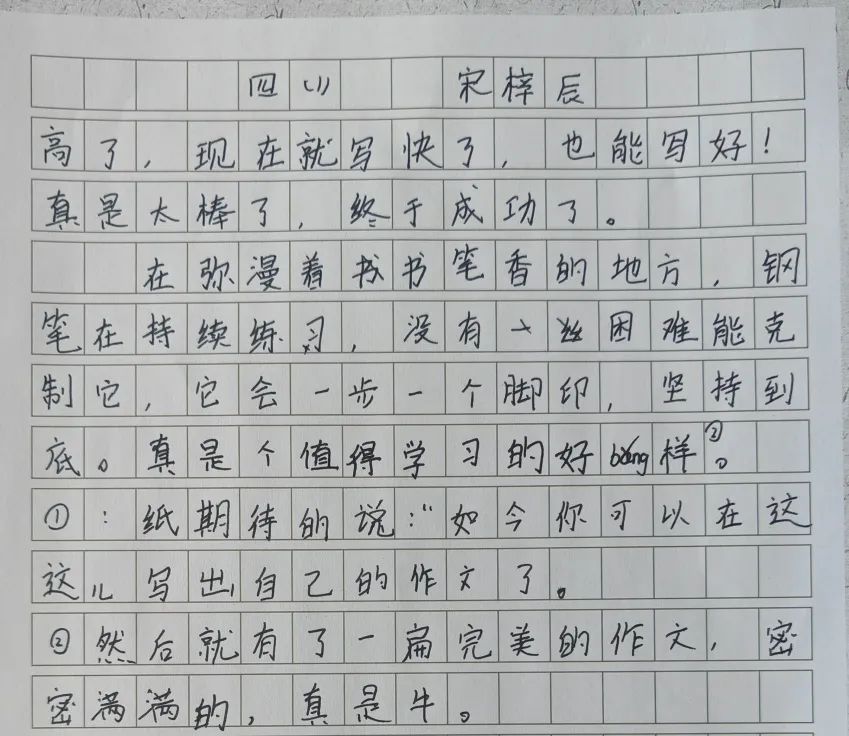 四(1) 宋梓辰
高了，现在就写快了，也能写好！
真是太棒了，终于成功了。
在弥漫着书书笔香的地方，钢
笔在持续练习，没有一丝困难能克
制它，它会一步一个脚印，坚持到
底。真是个值得学习的好bǎng样②。
①：纸期待的说：“如今你可以在这
这儿写出自己的作文了。
②然后就有了一扁完美的作文，密
密满满的，真是牛。